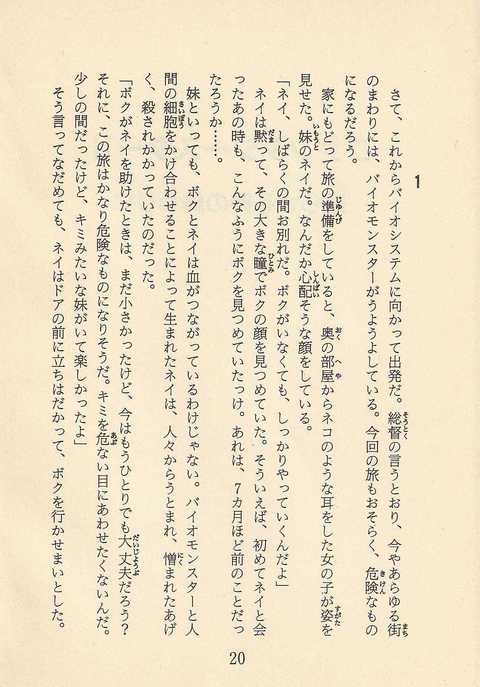 1
さて、これからバイオシステムに向かって出発だ。総督の言うとおり、今やあらゆる街
のまわりには、バイオモンスターがうようよしている。今回の旅もおそらく、危険なもの
になるだろう。
家にもどって旅の準備をしていると、奥の部屋からネコのような耳をした女の子が姿を
見せた。妹のネイだ。なんだか心配そうな顔をしている。
「ネイ、しばらくの間お別れだ。ボクがいなくても、しっかりやっていくんだよ」
ネイは黙って、その大きな瞳でボクの顔を見つめていた。そういえば、初めてネイと会
ったあの時も、こんなふうにボクを見つめていたっけ。あれは、7カ月ほど前のことだっ
たろうか……。
妹といっても、ボクとネイは血がつながっているわけじゃない。バイオモンスターと人
間の細胞をかけ合わせることによって生まれたネイは、人々からうとまれ、憎まれたあげ
く、殺されかかっていたのだった。
「ボクがネイを助けたときは、まだ小さかったけど、今はもうひとりでも大丈夫だろう？
それに、この旅はかなり危険なものになりそうだ。キミを危ない目にあわせたくないんだ。
少しの間だったけど、キミみたいな妹がいて楽しかったよ」
そう言ってなだめても、ネイはドアの前に立ちはだかって、ボクを行かせまいとした。
20